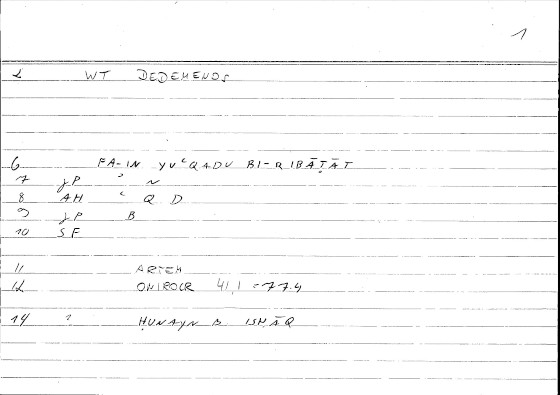 1
2 WT DEDEMENOS
6 FA-IN YUʿQADU BI-RIBĀṬĀT
7 JP ʾ N
8 AH ʿ Q D
9 JP B
10 SF
11 ARTEM
12 ONIROCR 41,1 = 77.4
14 ? ḤUNAYN B ISḤĀQ